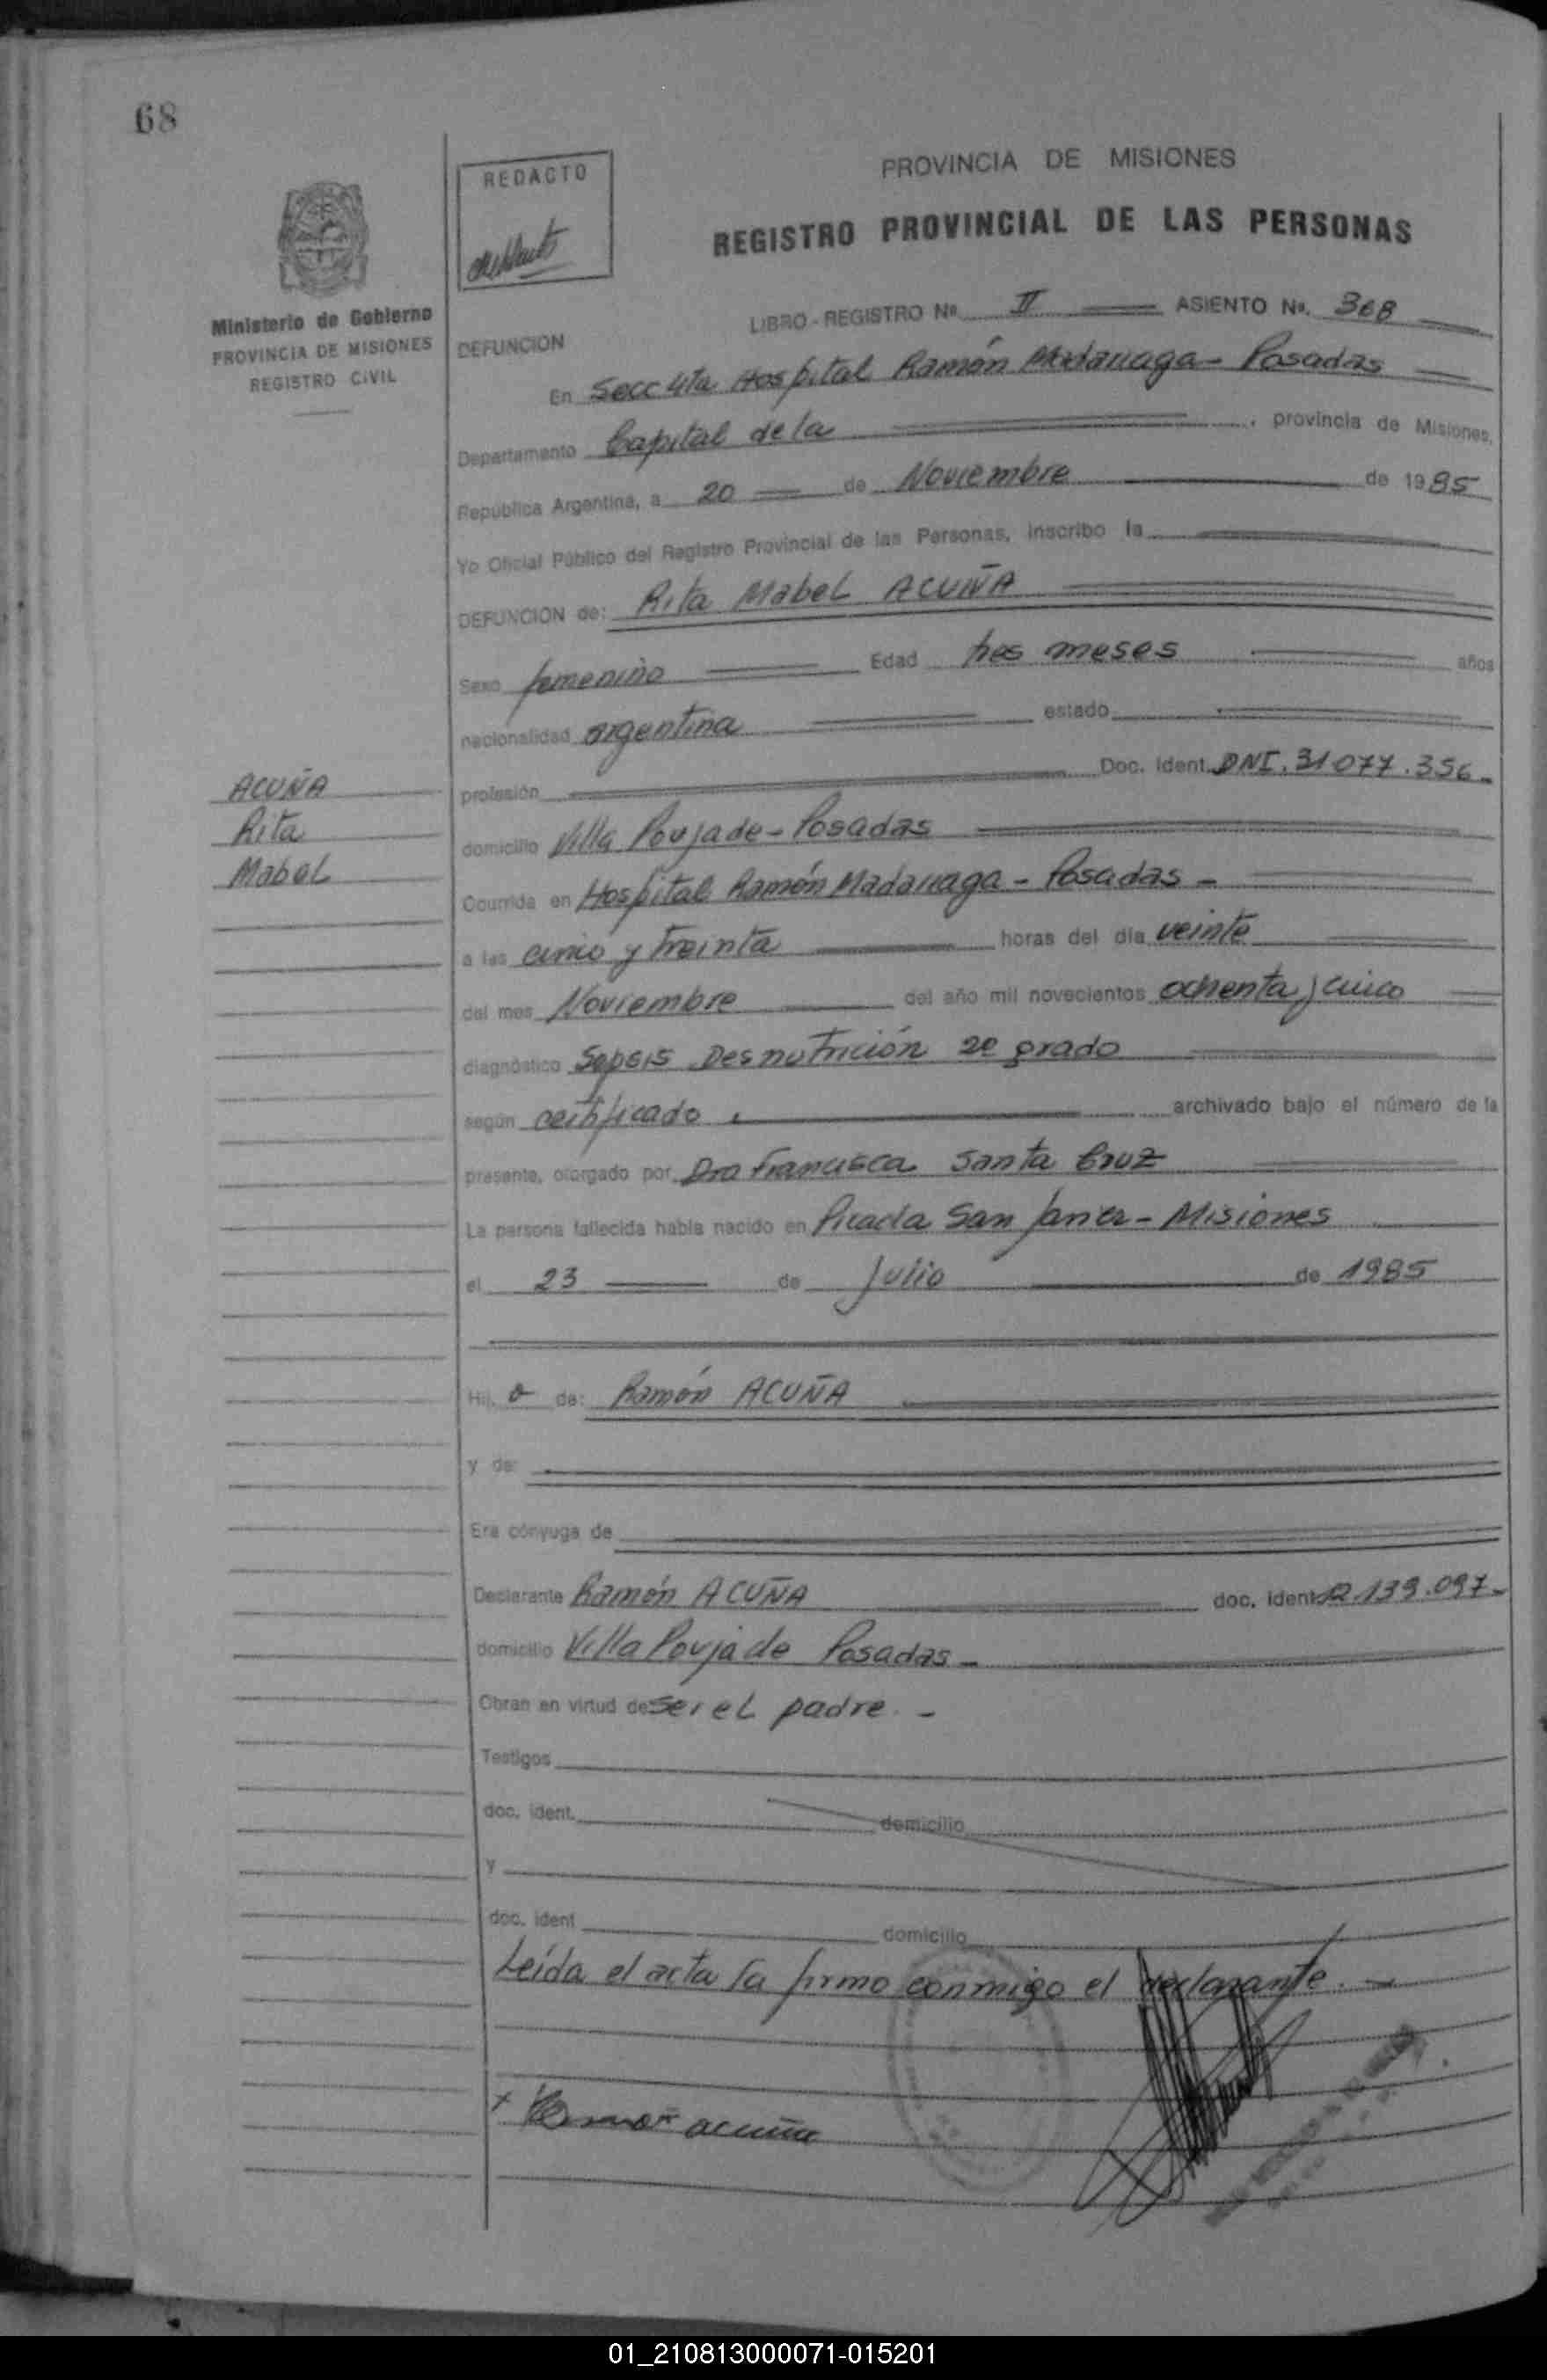 68
PROVINCIA DE MISIONES
REDACTO
REGISTRO PROVINCIAL DE LAS PERSONAS
Ministerio de Gobierno
PROVINCIA DE MISIONES
REGISTRO CIVIL
LIBRO - REGISTRO Nº II ASIENTO Nº. 368
DEFUNCION
En Secc 4ta Hospital Ramón Madariaga - Posadas
Departamento Capital de la, provincia de Misiones,
República Argentina, a 20 de Noviembre de 1985
Yo Oficial Público del Registro Provincial de las Personas, inscribo la
DEFUNCION de: Rita Mabel ACUÑA
Sexo femenino Edad tres meses años
nacionalidad argentina estado
profesión Doc. Ident. DNI. 31077.356-
ACUÑA
Rita
Mabel
domicilio Villa Poujade - Posadas
Ocurrida en Hospital Ramón Madariaga - Posadas -
a las cinco y treinta horas del día veinte
del mes Noviembre del año mil novecientos ochenta y cinco
diagnóstico Sepsis Desnutrición 2º grado
según certificado. archivado bajo el número de la
presente, otorgado por Dra Francisca Santa Cruz
La persona fallecida había nacido en Picada San Javier - Misiones
el 23 de Julio de 1985
Hij a de: Ramón ACUÑA
y de:
Era cónyuge de
Declarante Ramón ACUÑA doc. ident 12.139.097-
domicilio Villa Poujade Posadas -
Obran en virtud de ser el padre. -
Testigos
doc. ident. domicilio
y
doc. ident domicilio
Leída el acta la firmo conmigo el declarante. -
x Ramon acuña
01_210813000071-015201